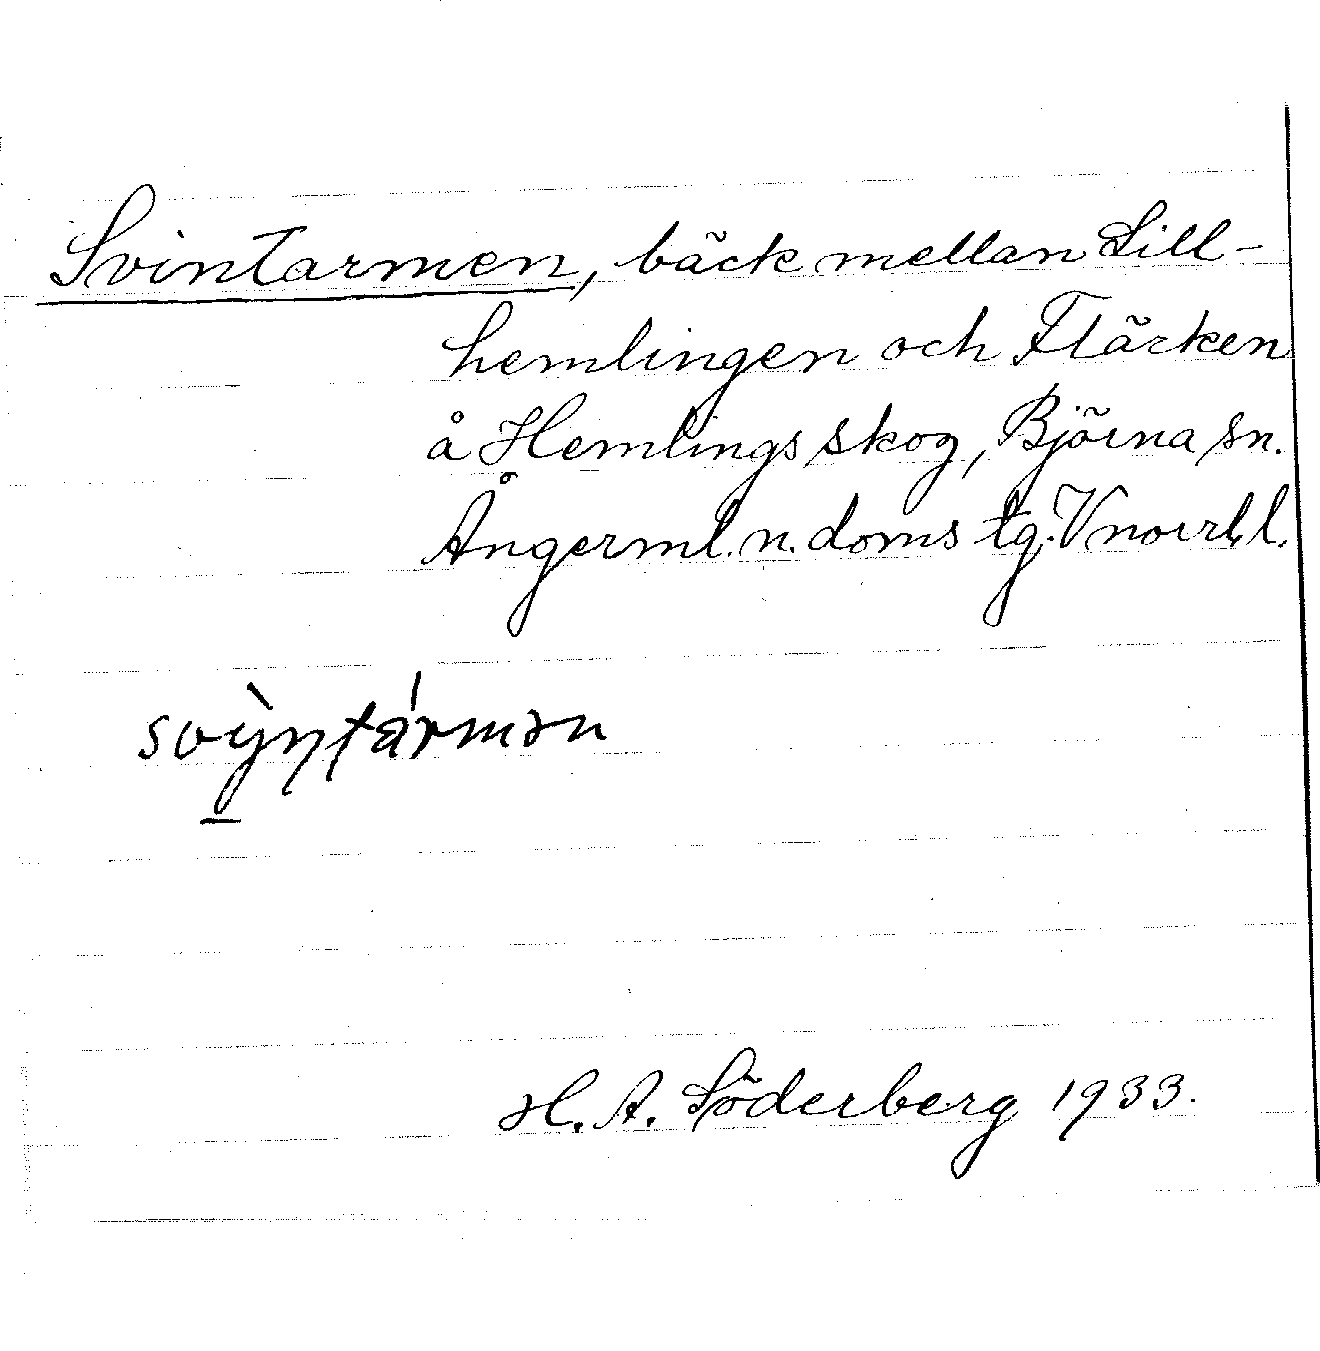 Svintarmen, bäck mellan Lill-
hemlingen och Fläcken
å Hemlings skog, Björna sn.
Ångerml. n. doms tg. Vnorrl. l.
svı̀ntármən
H. A. Söderberg 1933.